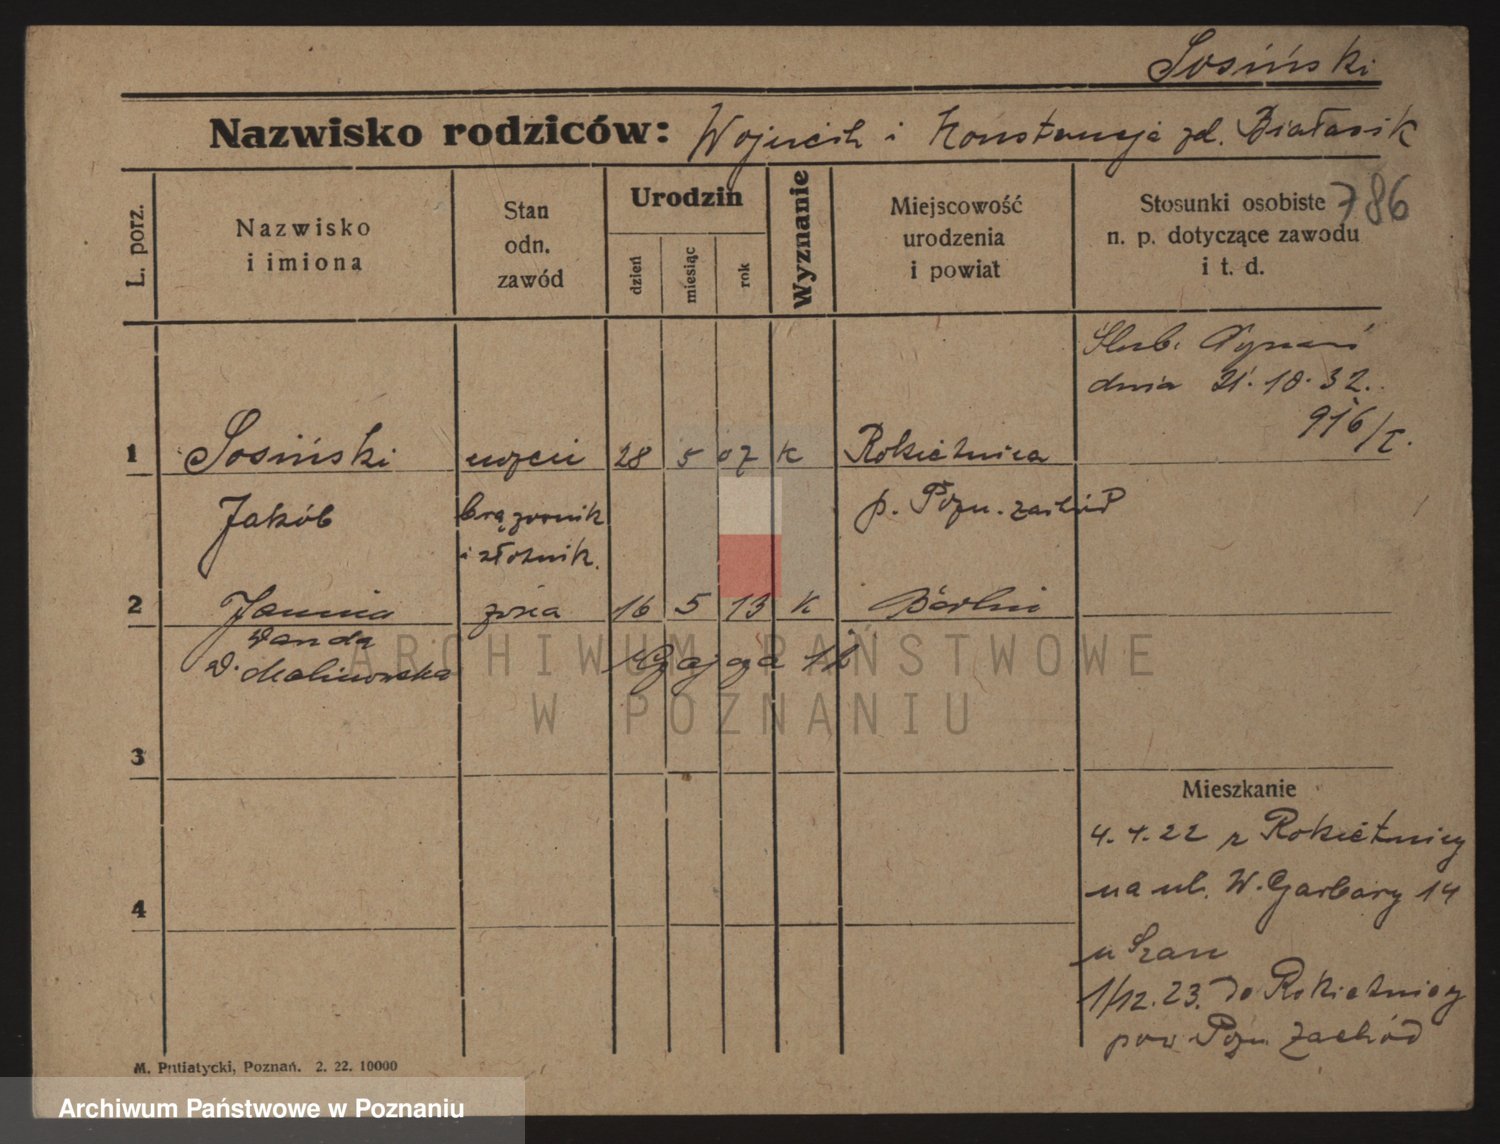 Sosiński
Nazwisko rodziców: Wojciech i Konstancja zd. Białasik
L. porz.
Nazwisko
i imiona
Stan
odn.
zawód
Urodzin
dzień
miesiąc
rok
Wyznanie
Miejscowość
urodzenia
i powiat
Stosunki osobiste
n. p. dotyczące zawodu
i t. d.
786
Ślub. Poznań
dnia 21.10.32.
916/
1 Sosiński uczeń 28 5 07 K Rokietnica
Jakób brązownik p. Pozn. zachód
i złotnik.
2 Janina żona 16 5 13 K Berlin
Wanda
d. Malinowska 12
3
4
Mieszkanie
4.4.22 z Rokietnicy
na ul. W. Garbary 14
u Szan
1/12.23. do Rokietnicy
pow. Pozn. Zachód
M. Putiatycki, Poznań. 2. 22. 10000
ARCHIWUM PAŃSTWOWE
W POZNANIU
Archiwum Państwowe w Poznaniu